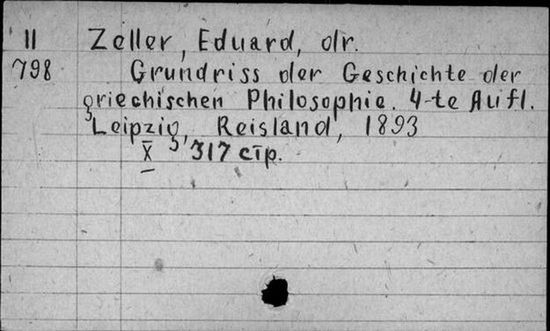 II Zeller, Eduard, dr.
798 Grundriss der Geschichte der
griechischen Philosophie. 4-te Aufl.
Leipzig, Reisland, 1893
X 317 стр.